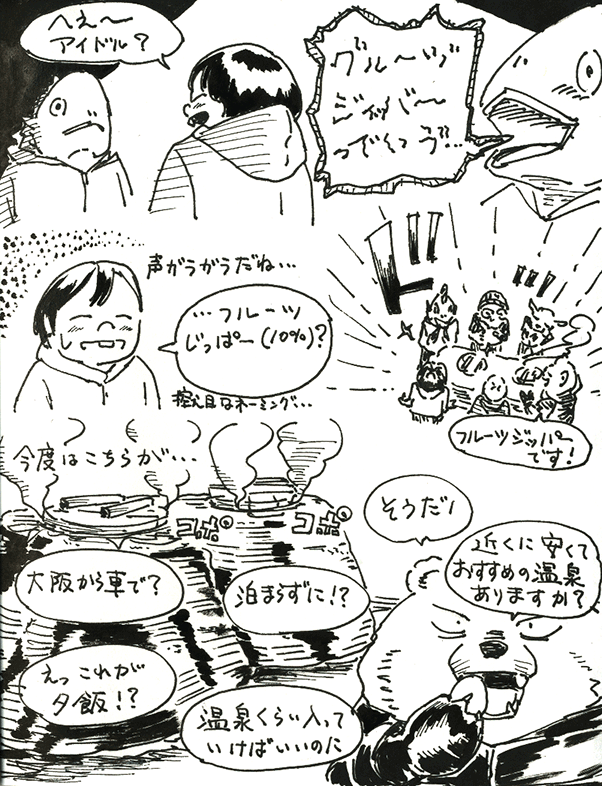 へえ〜
アイドル？
グルーヅ
ジッバー
っでぐつヴ!!
声がうがうだね…
…フルーツ
じっぱー(10%)?
控え目なネーミング…
ド!!
フルーツジッパー
です！
今度はこちらが…
コポ
コポ
大阪から車で？
泊まらずに!?
えっこれが
夕飯!?
温泉くらい入って
いけばいいのに
そうだ！
近くに安くて
おすすめの温泉
ありますか？